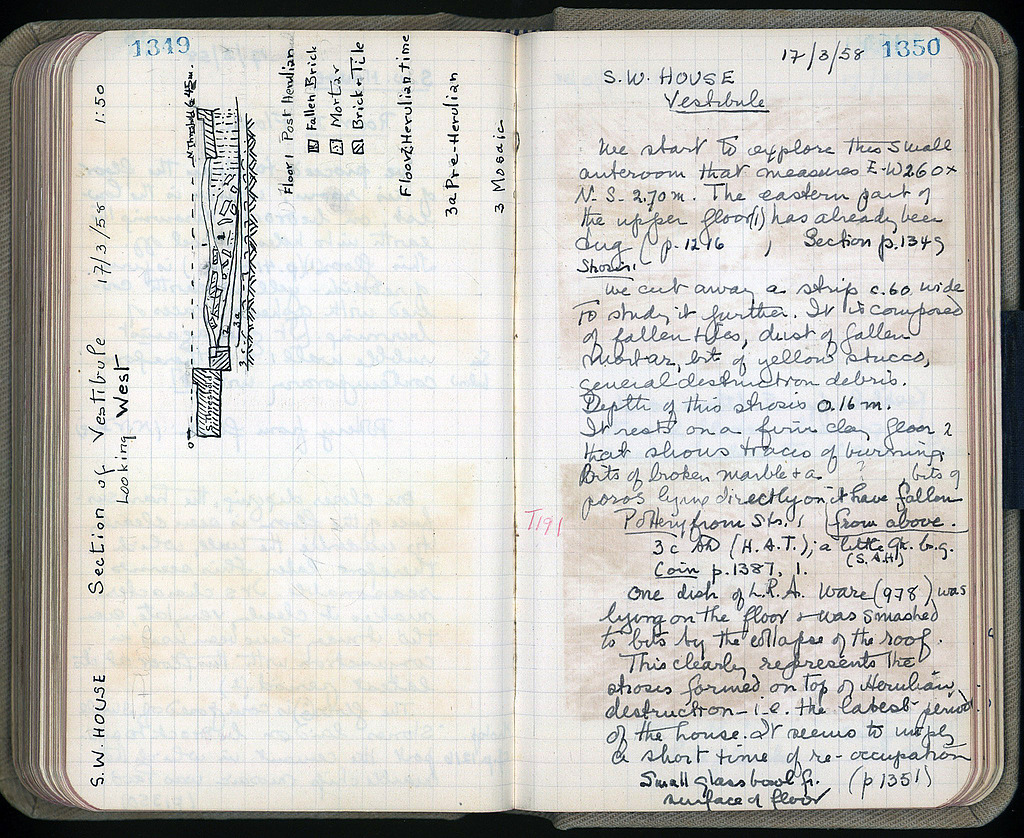 1349
S.W. HOUSE Section of Vestibule 17/3/58 1:50
Looking West
Floor 1 Post Herulian
Fallen Brick
Mortar
Brick + Tile
Floor 2 Herulian time
3a Pre-Herulian
3 Mosaic
17/3/58 1350
S.W. HOUSE
Vestibule
We start to explore this small
anteroom that measures E-W 2.60 x
N-S- 2.70 m. The eastern part of
the upper floor (1) has already been
dug (p. 1216 , Section p. 1349
Strosis 1
We cut away a strip c. 60 wide
to study it further. It is composed
of fallen tiles, dust of fallen
mortar, bits of yellow stucco,
general destruction debris.
Depth of this strosis 0.16 m.
It rests on a firm clay floor 2
that shows traces of burning.
Bits of broken marble + a bits of
poros lying directly on it have fallen
from above.
Pottery from Sts. 1
3c AD (H.A.T.); a little Gk. b.g.
(S.A.H)
Coin p. 1387, 1.
T191
One dish of L.R.A. Ware (978) was
lying on the floor + was smashed
to bits by the collapse of the roof.
This clearly represents the
strosis formed on top of Herulian
destruction - i.e. the latest period
of the house. It seems to imply
a short time of re-occupation
Small glass bowl fr. (p 1351)
surface of floor